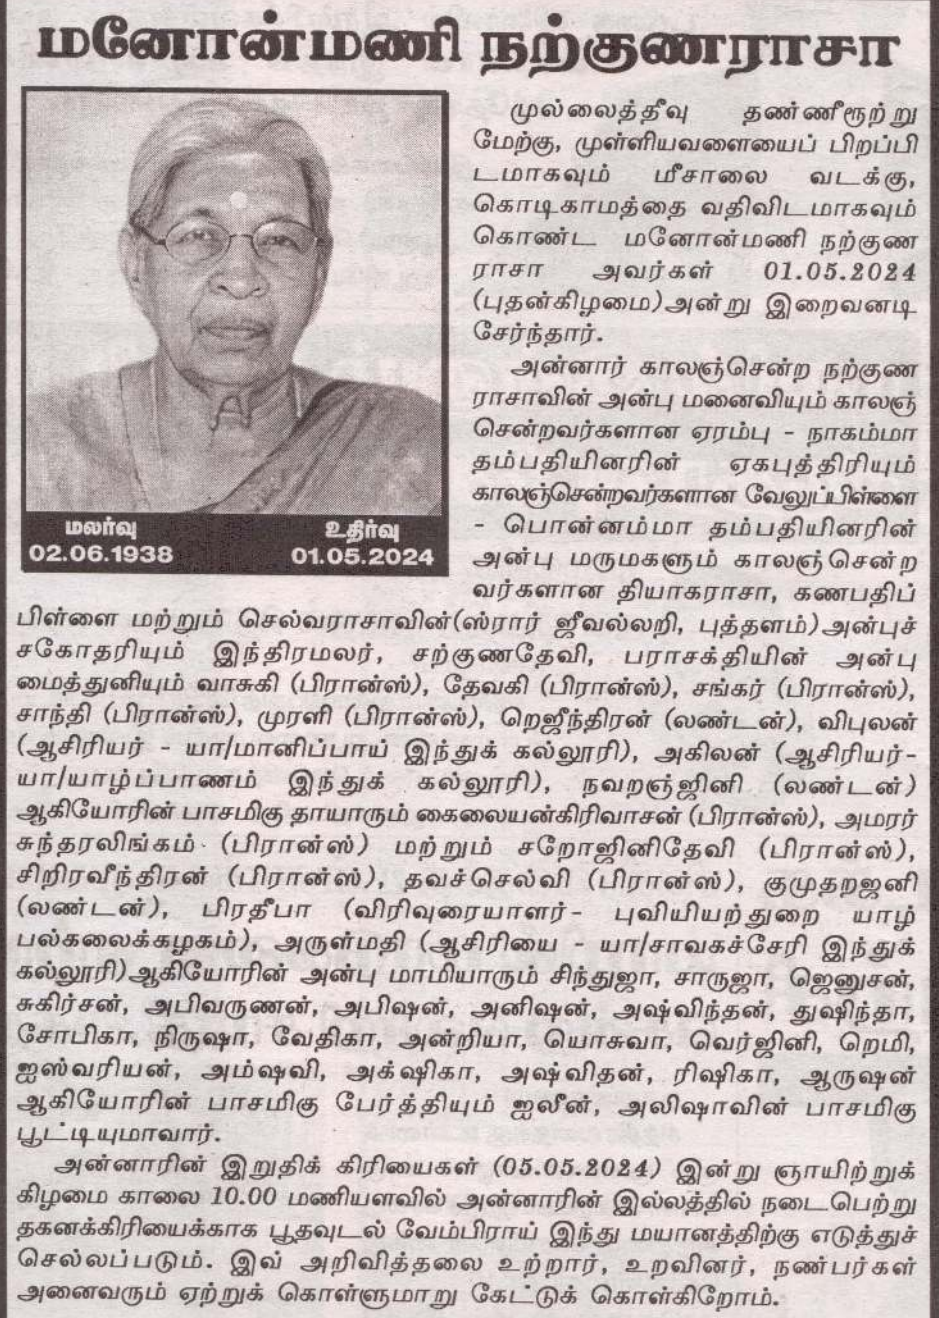 மனோன்மணி நற்குணராசா
முல்லைத்தீவு தண்ணீரூற்று
மேற்கு, முள்ளியவளையைப் பிறப்பி
டமாகவும் மீசாலை வடக்கு,
கொடிகாமத்தை வதிவிடமாகவும்
கொண்ட மனோன்மணி நற்குண
ராசா அவர்கள் 01.05.2024
(புதன்கிழமை)அன்று இறைவனடி
சேர்ந்தார்.
அன்னார் காலஞ்சென்ற நற்குண
ராசாவின் அன்பு மனைவியும் காலஞ்
சென்றவர்களான ஏரம்பு - நாகம்மா
தம்பதியினரின் ஏகபுத்திரியும்
காலஞ்சென்றவர்களான வேலுப்பிள்ளை
- பொன்னம்மா தம்பதியினரின்
அன்பு மருமகளும் காலஞ்சென்ற
வர்களான தியாகராசா, கணபதிப்
மலர்வு
02.06.1938
உதிர்வு
01.05.2024
பிள்ளை மற்றும் செல்வராசாவின்(ஸ்ரார் ஜீவல்லறி, புத்தளம்)அன்புச்
சகோதரியும் இந்திரமலர், சற்குணதேவி, பராசக்தியின் அன்பு
மைத்துனியும் வாசுகி (பிரான்ஸ்), தேவகி (பிரான்ஸ்), சங்கர் (பிரான்ஸ்),
சாந்தி (பிரான்ஸ்), முரளி (பிரான்ஸ்), றெஜீந்திரன் (லண்டன்), விபுலன்
(ஆசிரியர் - யா/மானிப்பாய் இந்துக் கல்லூரி), அகிலன் (ஆசிரியர்-
யா/யாழ்ப்பாணம் இந்துக் கல்லூரி), நவறஞ்ஜினி (லண்டன்)
ஆகியோரின் பாசமிகு தாயாரும் கைலையன்கிரிவாசன் (பிரான்ஸ்), அமரர்
சுந்தரலிங்கம் (பிரான்ஸ்) மற்றும் சறோஜினிதேவி (பிரான்ஸ்),
சிறிரவீந்திரன் (பிரான்ஸ்), தவச்செல்வி (பிரான்ஸ்), குமுதறஜனி
(லண்டன்), பிரதீபா (விரிவுரையாளர்- புவியியற்துறை யாழ்
பல்கலைக்கழகம்), அருள்மதி (ஆசிரியை - யா/சாவகச்சேரி இந்துக்
கல்லூரி)ஆகியோரின் அன்பு மாமியாரும் சிந்துஜா, சாருஜா, ஜெனுசன்,
சுகிர்சன், அபிவருணன், அபிஷன், அனிஷன், அஷ்விந்தன், துஷிந்தா,
சோபிகா, நிருஷா, வேதிகா, அன்றியா, யொசுவா, வெர்ஜினி, றெமி,
ஐஸ்வரியன், அம்ஷவி, அக்ஷிகா, அஷ்விதன், ரிஷிகா, ஆருஷன்
ஆகியோரின் பாசமிகு பேர்த்தியும் ஐலீன், அலிஷாவின் பாசமிகு
பூட்டியுமாவார்.
அன்னாரின் இறுதிக் கிரியைகள் (05.05.2024) இன்று ஞாயிற்றுக்
கிழமை காலை 10.00 மணியளவில் அன்னாரின் இல்லத்தில் நடைபெற்று
தகனக்கிரியைக்காக பூதவுடல் வேம்பிராய் இந்து மயானத்திற்கு எடுத்துச்
செல்லப்படும். இவ் அறிவித்தலை உற்றார், உறவினர், நண்பர்கள்
அனைவரும் ஏற்றுக் கொள்ளுமாறு கேட்டுக் கொள்கிறோம்.